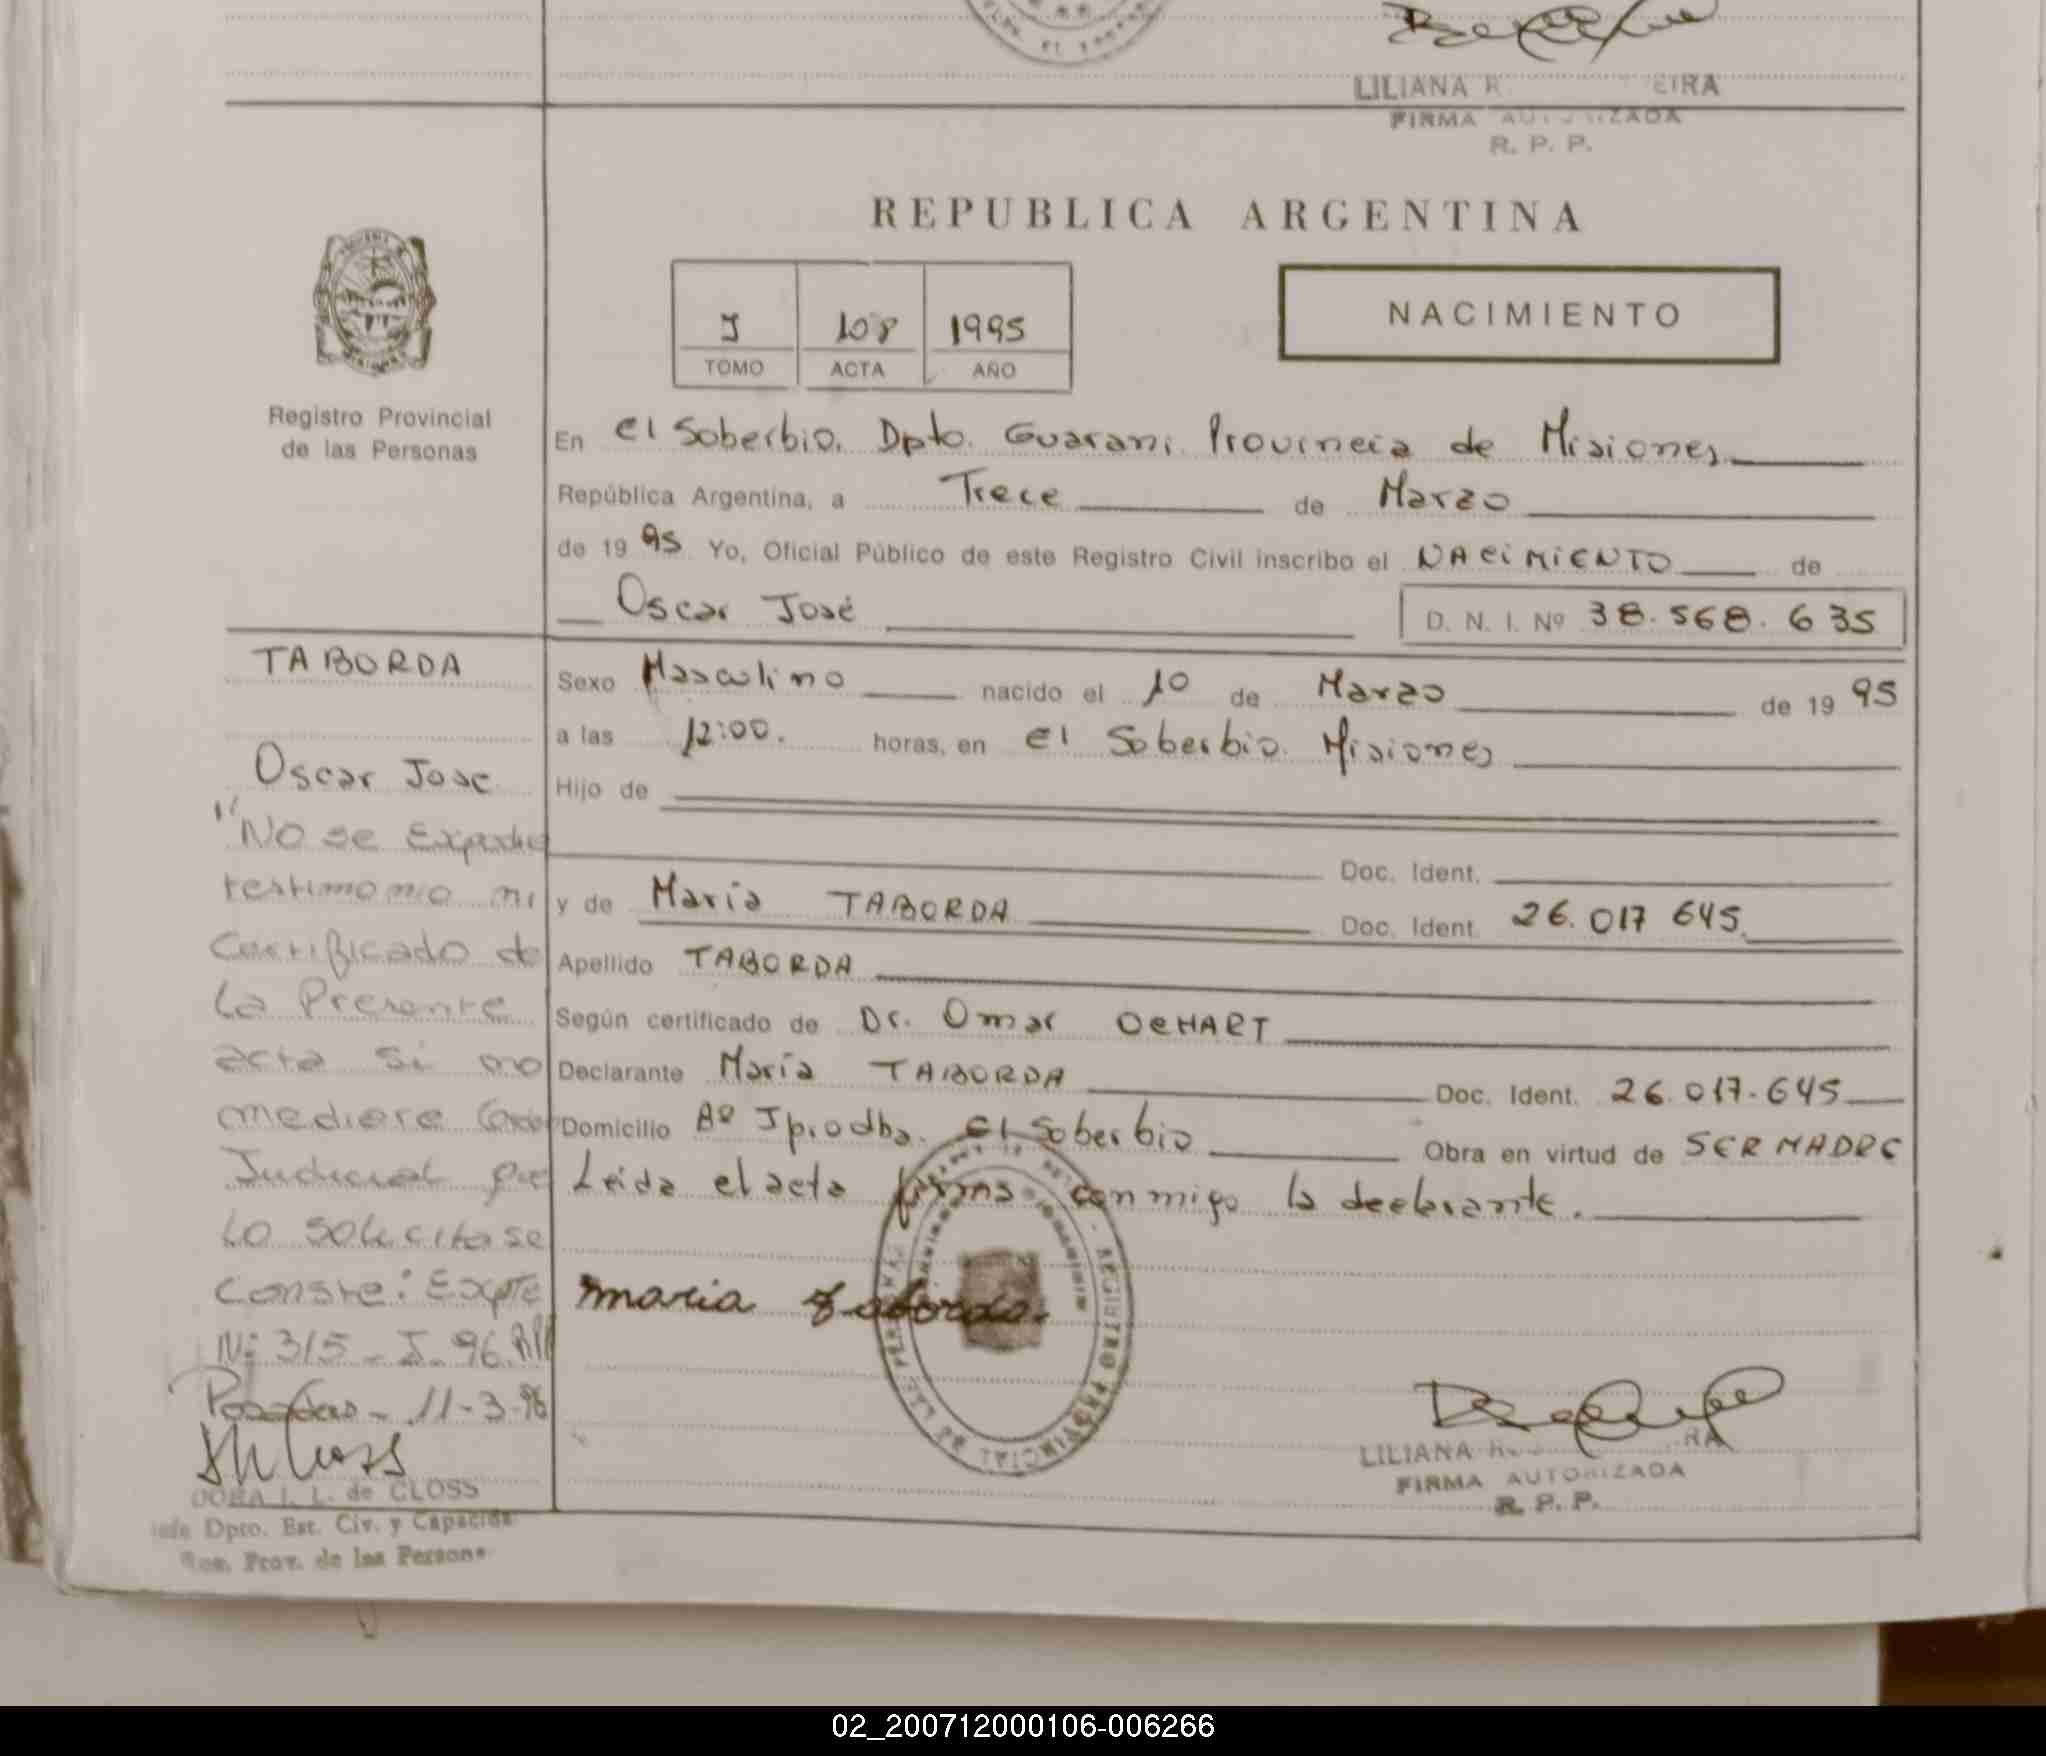 LILIANA R EIRA
FIRMA AUTORIZADA
R. P. P.
REPUBLICA ARGENTINA
I 108 1995
TOMO ACTA AÑO
NACIMIENTO
Registro Provincial
de las Personas
En El Soberbio. Dpto. Guarani Provincia de Misiones
República Argentina, a Trece de Marzo
de 1995 Yo, Oficial Público de este Registro Civil inscribo el NACIMIENTO de
Oscar José D. N. I. Nº 38.568.635
TABORDA
Oscar Jose
"No se Expedira
testimonio ni
Certificado de
La Presente
acta si no
mediare Orden
Judicial que
Lo solicitase
Conste: Expte
Nº 315 - I - 96
Posadas - 11-3-96
DORA I. L. de CLOSS
Jefe Dpto. Est. Civ. y Capacida
Reg. Prov. de las Persona
Sexo Masculino nacido el 10 de Marzo de 1995
a las 12:00. horas, en El Soberbio. Misiones
Hijo de
Doc. Ident.
y de María TABORDA Doc. Ident. 26.017 645
Apellido TABORDA
Según certificado de Dr. Omar OCHART
Declarante María TABORDA Doc. Ident. 26.017.645
Domicilio Bº Iprodha. El Soberbio Obra en virtud de SER MADRE
Leida el acta firma conmigo la declarante.
maria taborda.
REGISTRO PROVINCIAL DE LAS PERSONAS
LILIANA R RA
FIRMA AUTORIZADA
R. P. P.
02_200712000106-006266